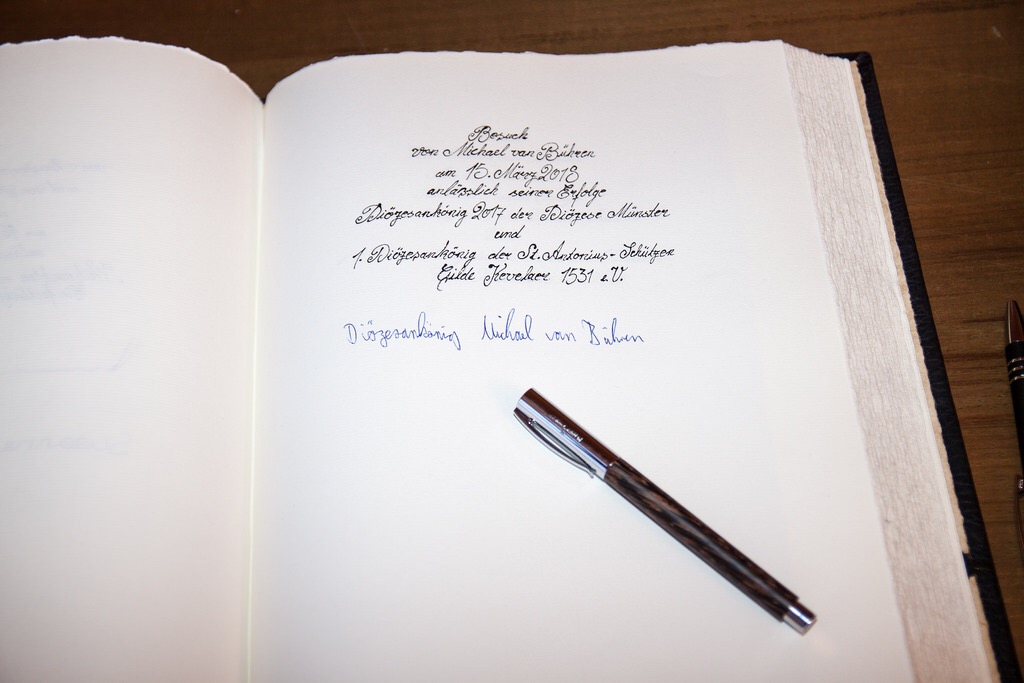 Besuch
von Michael van Bühren
am 15. März 2018
anlässlich seiner Erfolge
Diözesankönig 2017 der Diözese Münster
und
1. Diözesankönig der St. Antonius-Schützen
Gilde Kevelaer 1531 e.V.
Diözesankönig Michael van Bühren